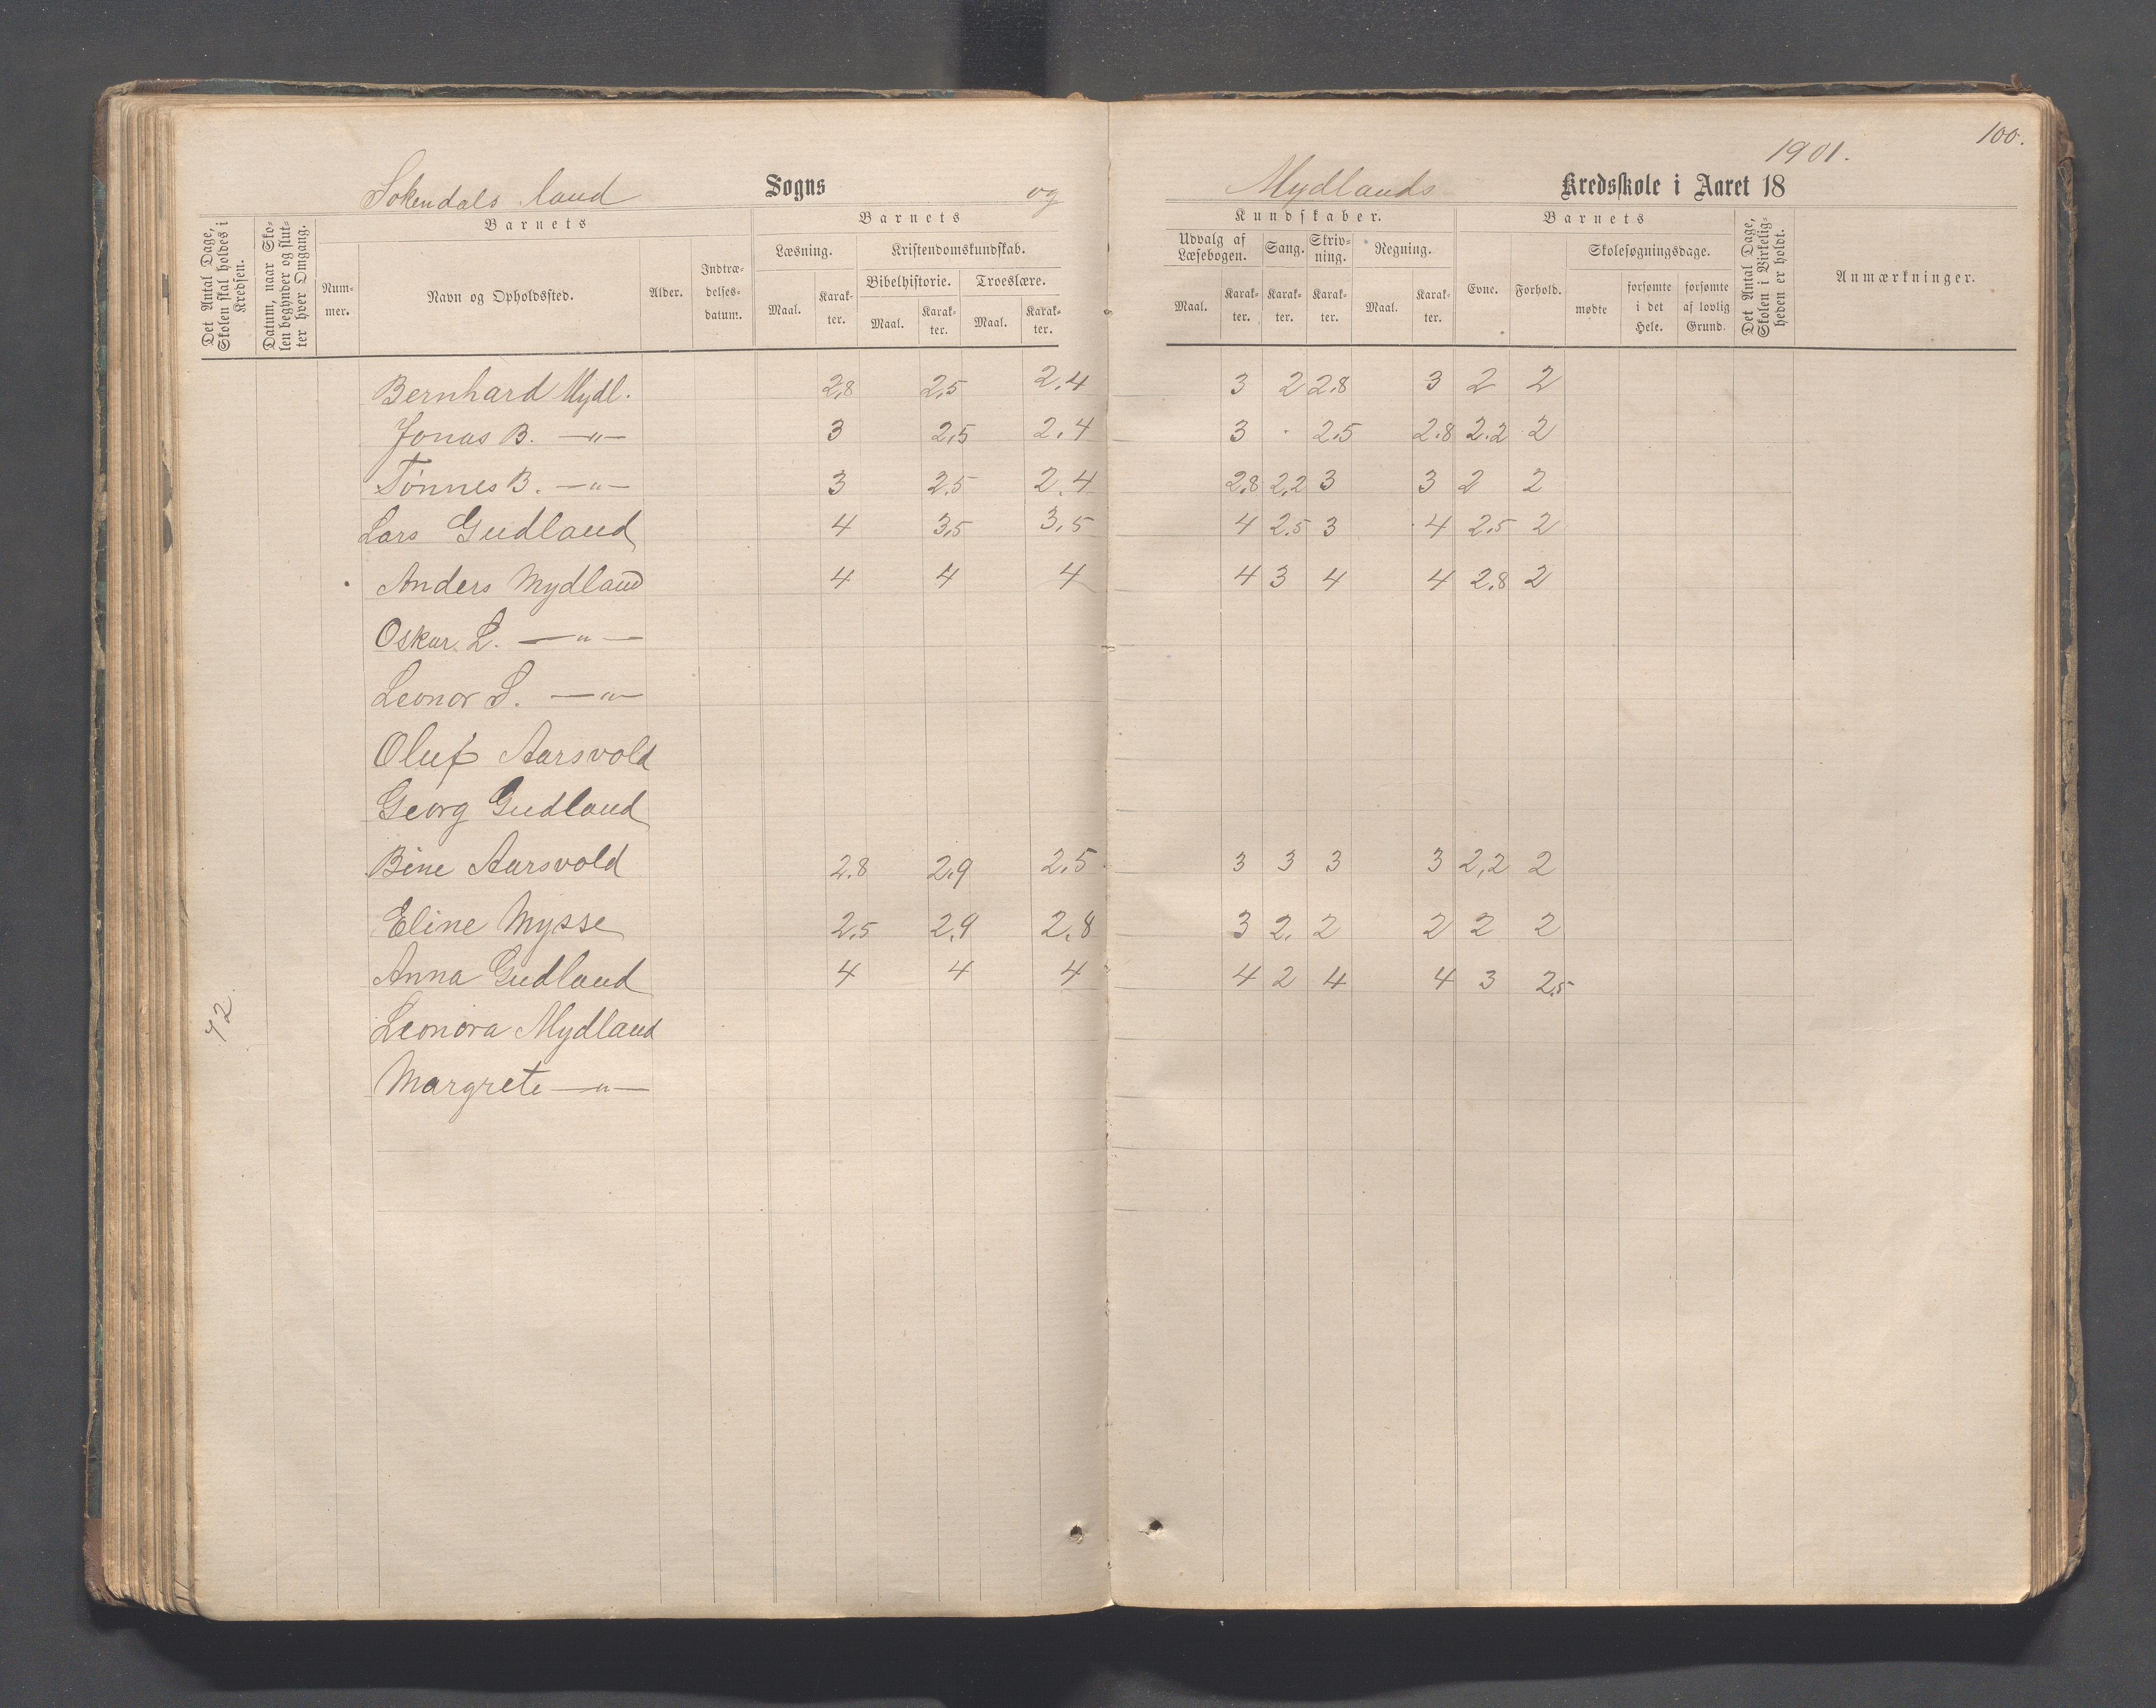 100.
1901.
Sokendals land Sogns og Mydlands Kredsskole i Aaret 18
Det Antal Dage, Skolen skal holdes i Kredsen.
Datum, naar Skolen begynder og slutter hver Omgang.
Barnets
Nummer.
Navn og Opholdssted.
Alder.
Indtrædelsesdatum.
Barnets
Læsning.
Maal.
Karakter.
Kristendomskundskab.
Bibelhistorie.
Maal.
Karakter.
Troeslære.
Maal.
Karakter.
Kundskaber.
Udvalg af Læsebogen.
Maal.
Karakter.
Sang.
Karakter.
Skrivning.
Karakter.
Regning.
Maal.
Karakter.
Barnets
Evne.
Forhold.
Skolesøgningsdage.
mødte
forsømte i det Hele.
forsømte af lovlig Grund.
Det Antal Dage, Skolen i Virkeligheden er holdt.
Anmærkninger.
Bernhard Mydl. 2,8 2,5 2,4 3 2 2,8 3 2 2
Jonas B. —"— 3 2,5 2,4 3 . 2,5 2.8 2.2 2
Tönnes B. —"— 3 2,5 2,4 2,8 2,2 3 3 2 2
Lars Gudland 4 3,5 3,5 4 2.5 3 4 2,5 2
Anders Mydland 4 4 4 4 3 4 4 2,8 2
Oskar L. —"—
Leonor S. —"—
Oluf Aarsvold
Georg Gudland
Bine Aarsvold 2.8 2,9 2,5 3 3 3 3 2,2 2
Eline Mysse 2,5 2,9 2,8 3 2. 2 2 2 2
Anna Gudland 4 4 4 4 2 4 4 3 2,5
Leonora Mydland
Margrete —"—
72.